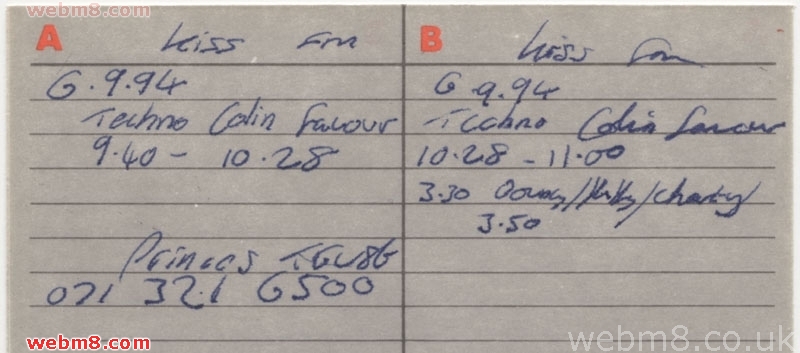 webm8.com
A Kiss Fm
6.9.94
Techno Colin Favour
9.40 - 10.28
Princes
071 321 6500
webm8.com
B Kiss Fm
6 9.94
Techno Colin Favour
10.28 - 11.00
3.30
3.50
webm8.co.uk